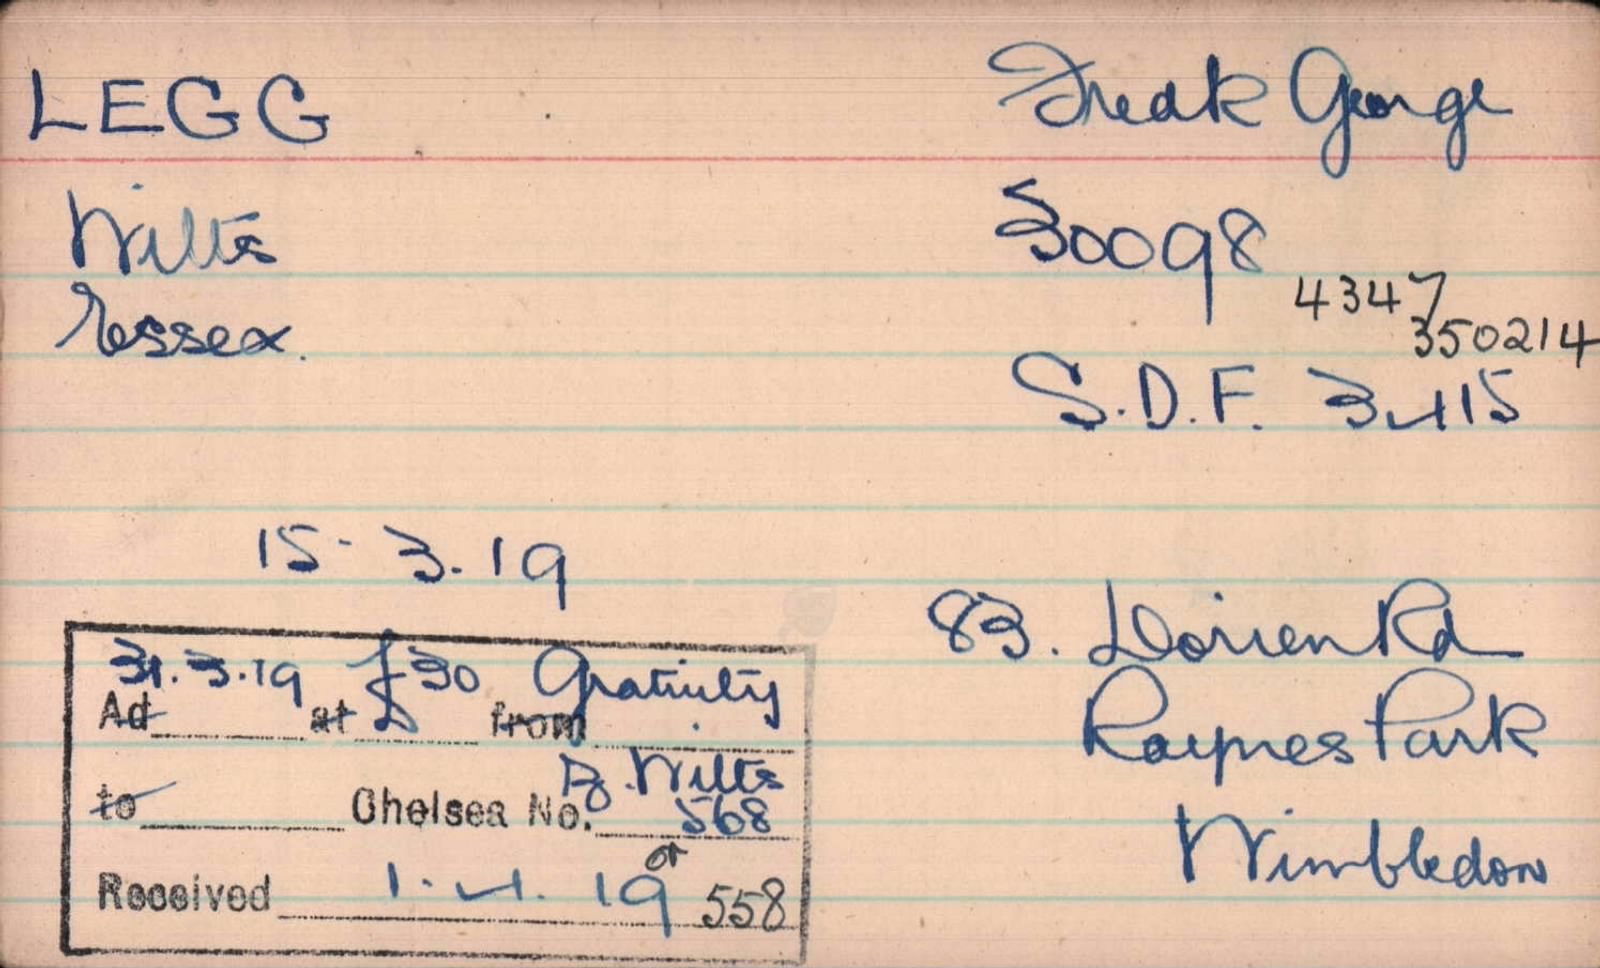 LEGG Fredk George
Wilts 30098
Essex. 4347
350214
S.D.F. 3415
15.3.19
83. Dorien Rd
Raynes Park
Wimbledon
31.3.19 £30 Gratuity
Ad at from
Wilts
to Chelsea No. 568
or
Received 1.4.19 558